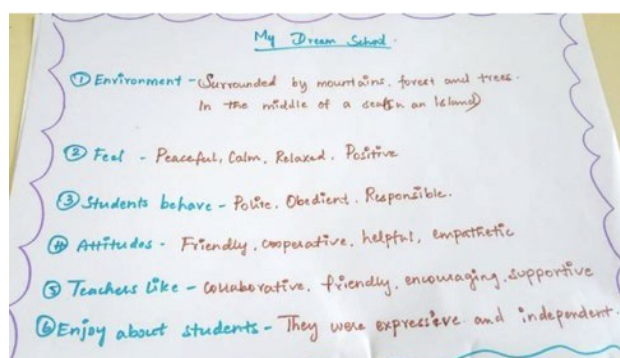 My Dream School.
① Environment - Surrounded by mountains, forest and trees.
In the middle of a sea(In an Island)
② Feel - Peaceful, Calm, Relaxed, Positive
③ Students behave - Polite, Obedient, Responsible.
④ Attitudes - Friendly, cooperative, helpful, empathetic
⑤ Teachers Like - collaborative, friendly, encouraging, supportive
⑥ Enjoy about students - They were expressive and independent.